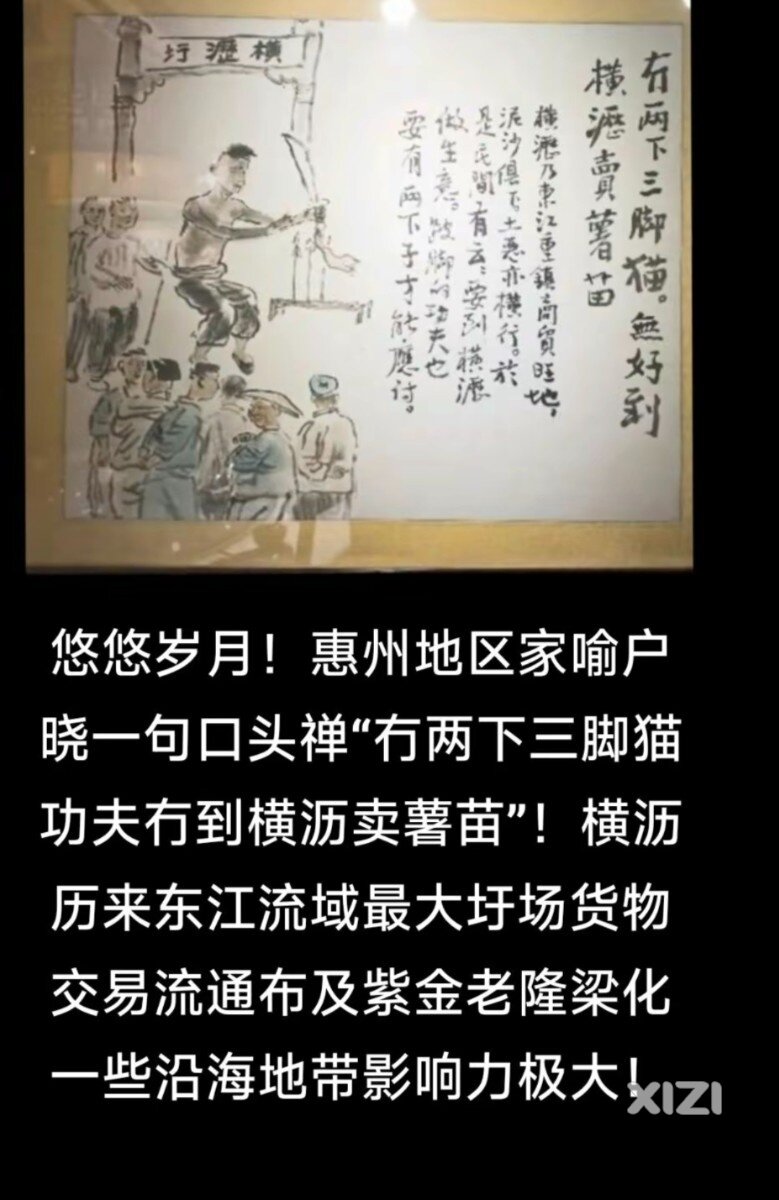 橫瀝圩
冇兩下三脚猫。無好到
橫瀝賣薯苗
橫瀝乃東江重鎮商貿旺地，
泥沙俱下土惡亦橫行。於
是民間有云：要到橫瀝
做生意。脚的功夫也
要有兩下子才能應付。
悠悠岁月！惠州地区家喻户
晓一句口头禅“冇两下三脚猫
功夫冇到横沥卖薯苗”！横沥
历来东江流域最大圩场货物
交易流通布及紫金老隆梁化
一些沿海地带影响力极大！
XIZI